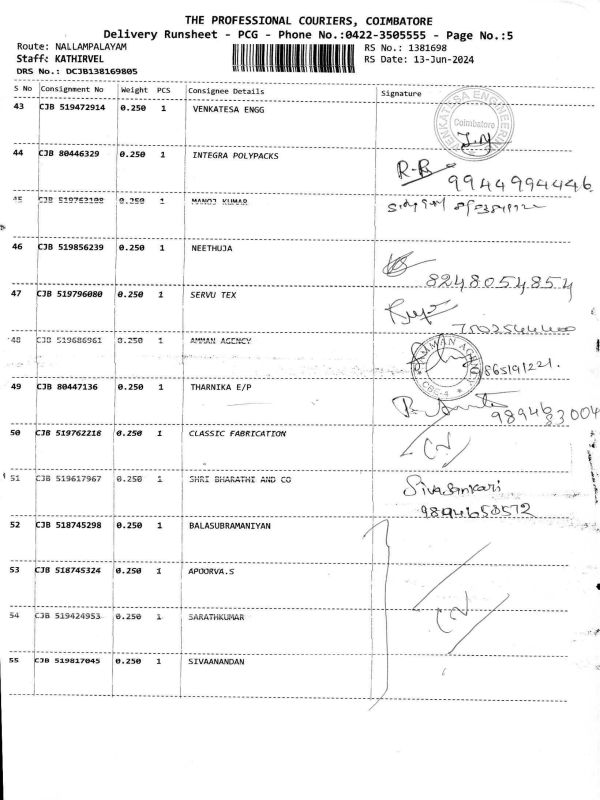 THE PROFESSIONAL COURIERS, COIMBATORE
Delivery Runsheet - PCG - Phone No.:0422-3505555 - Page No.:5
Route: NALLAMPALAYAM RS No.: 1381698
Staff: KATHIRVEL RS Date: 13-Jun-2024
DRS No.: DCJB138169805
S No Consignment No Weight PCS Consignee Details Signature
43 CJB 519472914 0.250 1 VENKATESA ENGG
Coimbatore
44 CJB 80446329 0.250 1 INTEGRA POLYPACKS R-B
9944994446
45 CJB 519762108 0.250 1 MANOJ KUMAR
46 CJB 519856239 0.250 1 NEETHUJA
8248054854
47 CJB 519796080 0.250 1 SERVU TEX
48 CJB 519686961 0.250 1 AMMAN AGENCY
AMMAN AGENCY
49 CJB 80447136 0.250 1 THARNIKA E/P
9894683004
50 CJB 519762218 0.250 1 CLASSIC FABRICATION
51 CJB 519617967 0.250 1 SHRI BHARATHI AND CO Sivasankari
9894650572
52 CJB 518745298 0.250 1 BALASUBRAMANIYAN
53 CJB 518745324 0.250 1 APOORVA.S
54 CJB 519424953 0.250 1 SARATHKUMAR
55 CJB 519817045 0.250 1 SIVAANANDAN